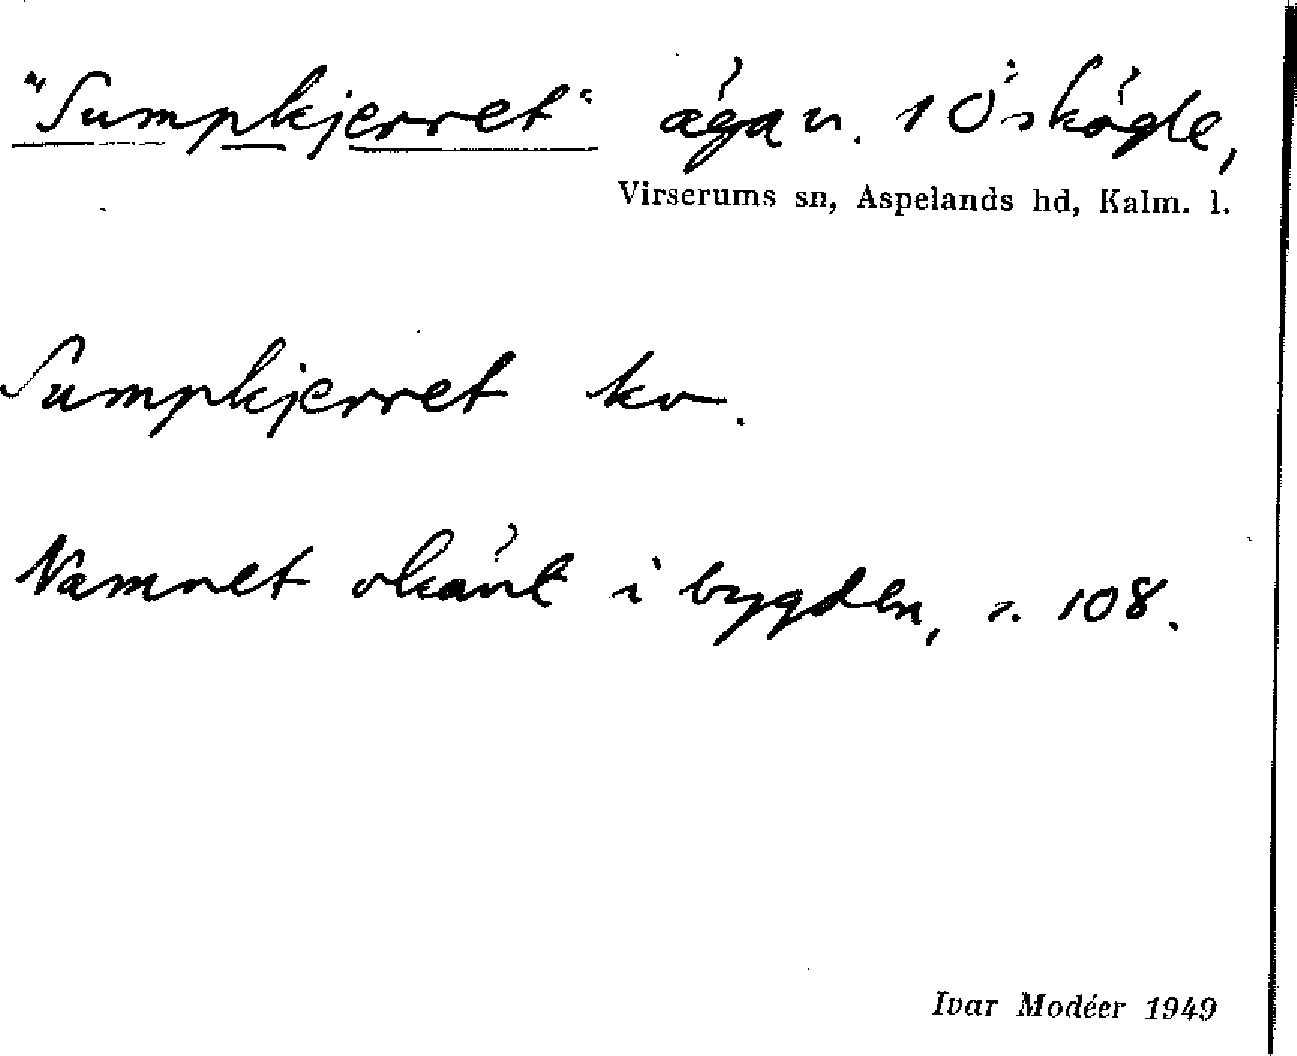 "Sumpkjerret" ägan. 1 Ö skögle,
Virserums sn, Aspelands hd, Kalm. l.
Sumpkjerret kv.
Namnet okänt i bygden, s. 108.
Ivar Modéer 1949